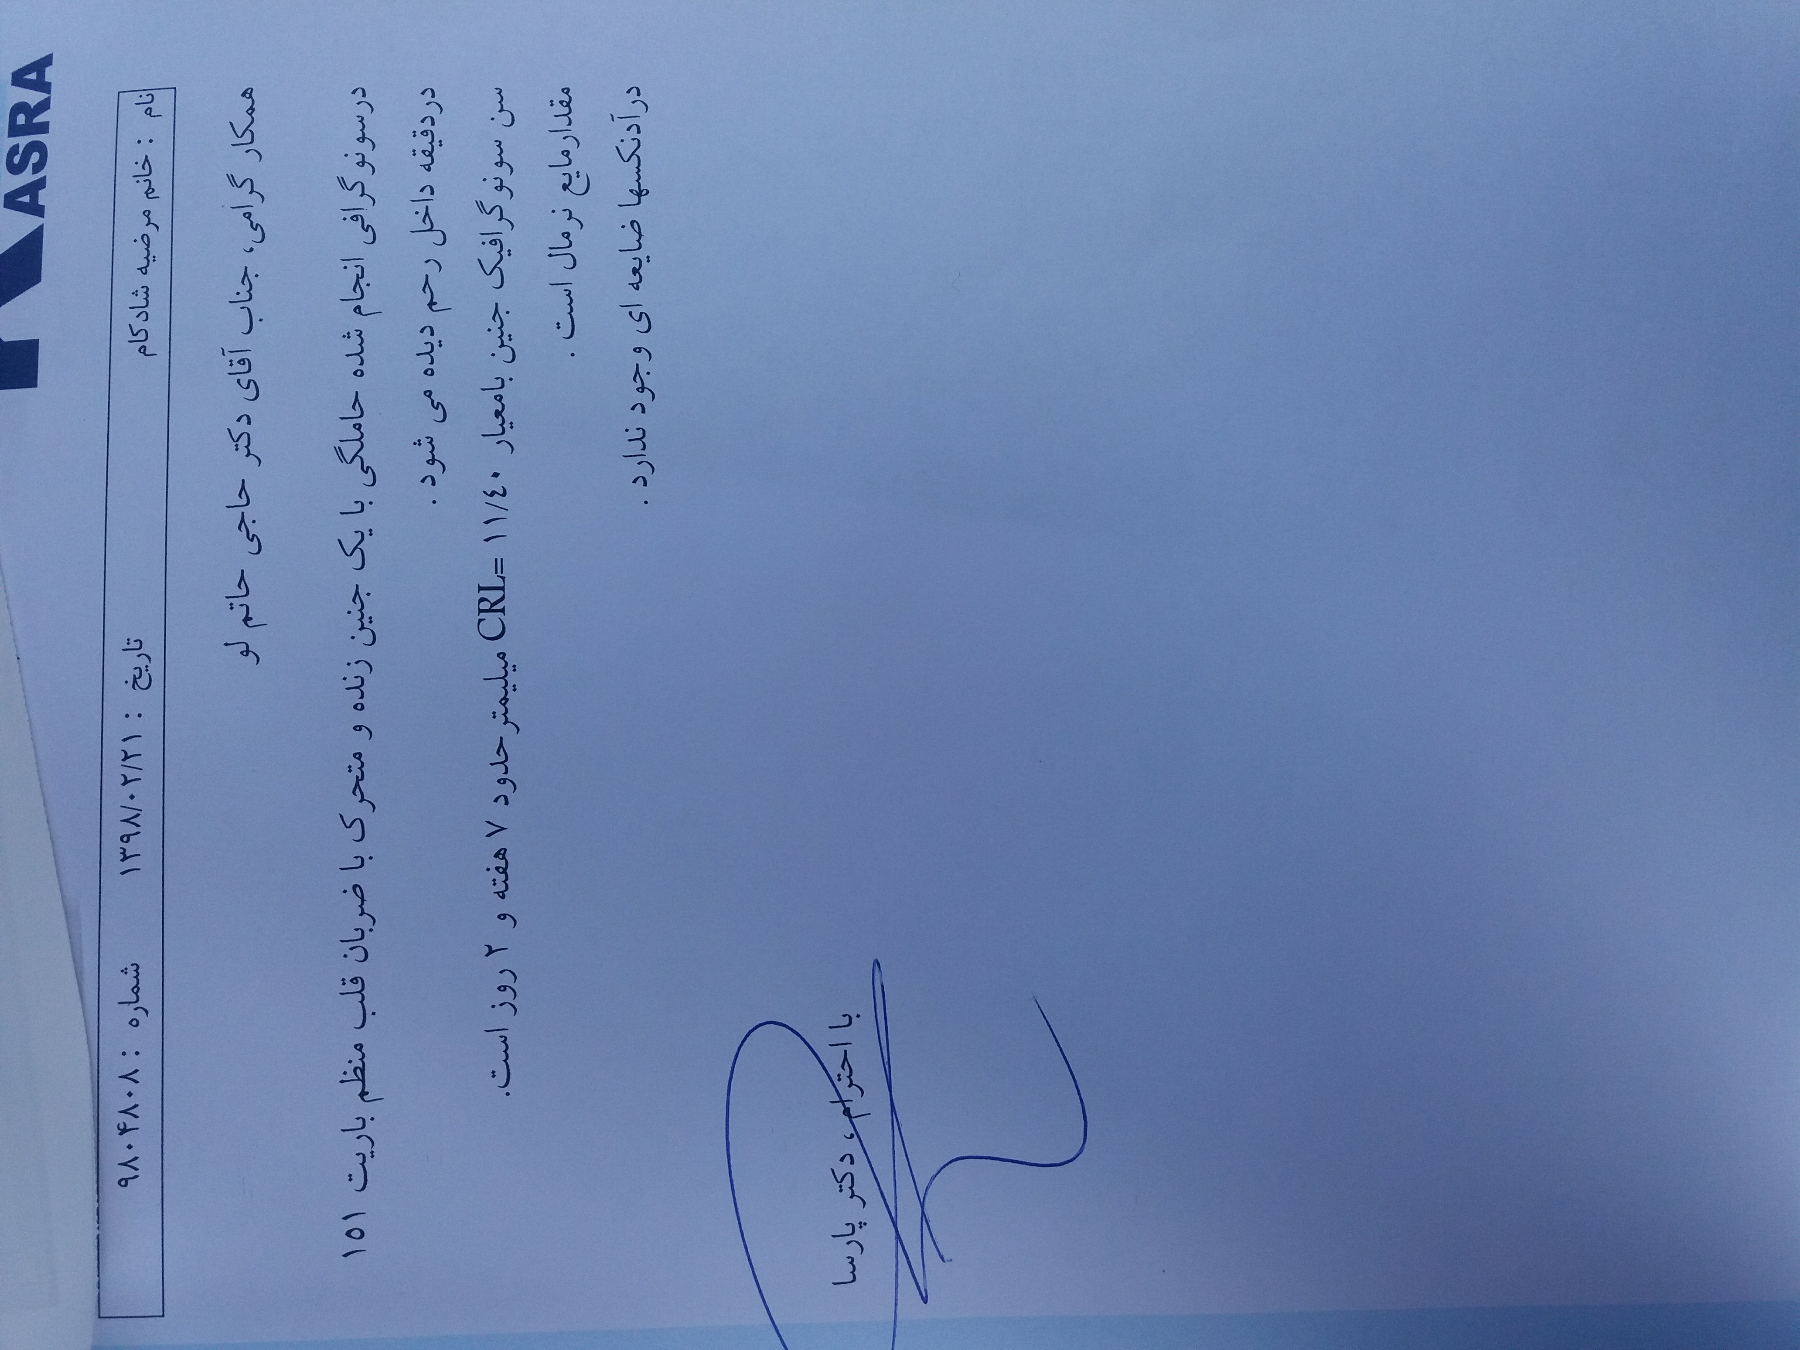 KASRA
نام : خانم مرضیه شادکام تاریخ : ۱۳۹۸/۰۲/۲۱ شماره : ۹۸۰۴۸۰۸
همکار گرامی، جناب آقای دکتر حاجی حاتم لو
درسونوگرافی انجام شده حاملگی با یک جنین زنده و متحرک با ضربان قلب منظم باریت ۱۵۱
دردقیقه داخل رحم دیده می شود .
سن سونوگرافیک جنین بامعیار CRL= ۱۱/٤۰ میلیمتر حدود ۷ هفته و ۲ روز است.
مقدارمایع نرمال است .
درآدنکسها ضایعه ای وجود ندارد .
با احترام، دکتر پارسا